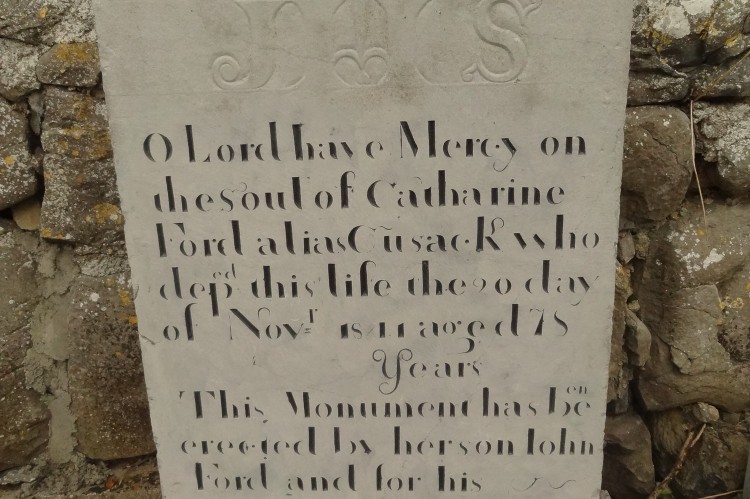 IHS
O Lord have Mercy on
the Soul of Catharine
Ford alias Cusack who
dep^ed this life the 20 day
of Nov^r 1811 aged 78
Years
This Monument has be^en
erected by her son John
Ford and for his